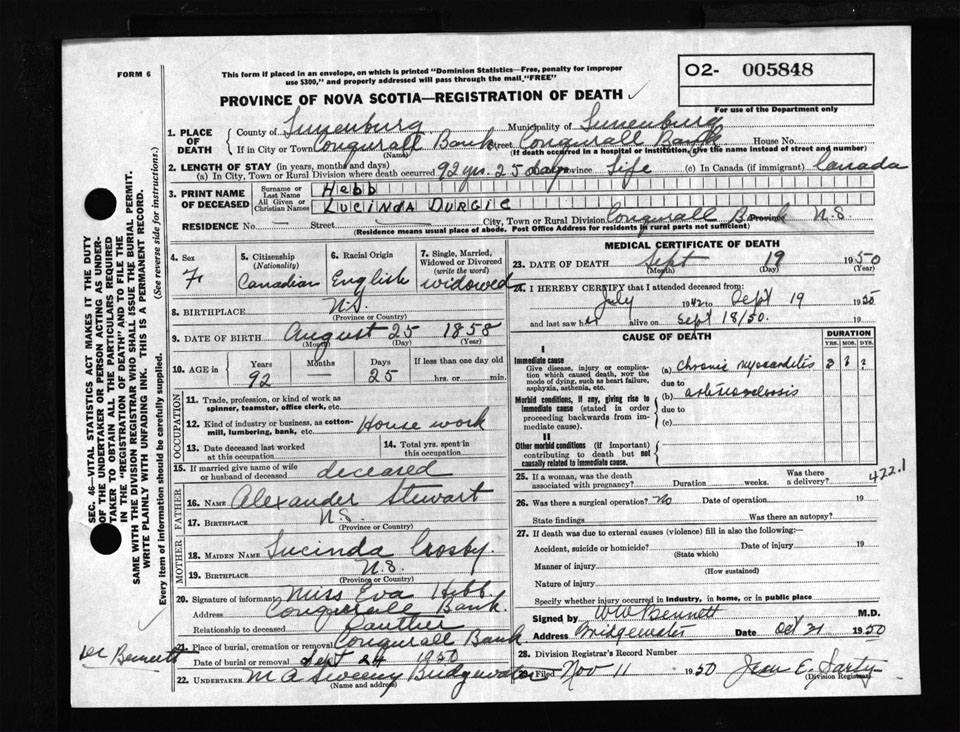 FORM 6
This form if placed in an envelope, on which is printed "Dominion Statistics—Free, penalty for improper
use $300," and properly addressed will pass through the mail "FREE"
O2- 005848
For use of the Department only
PROVINCE OF NOVA SCOTIA—REGISTRATION OF DEATH
1. PLACE OF DEATH County of Lunenburg Municipality of Lunenburg
If in City or Town Conqurall Bank (Name) Street Conqurall Bank House No.
(If death occurred in a hospital or institution, give the name instead of street and number)
2. LENGTH OF STAY (in years, months and days)
(a) In City, Town or Rural Division where death occurred 92 yrs. 25 days Province Life (c) In Canada (if immigrant) Canada
3. PRINT NAME OF DECEASED Surname or Last Name Hebb
All Given or Christian Names LUCINDA DURGIE
RESIDENCE No. — Street City, Town or Rural Division Conqurall Bank Province N.S.
(Residence means usual place of abode. Post Office Address for residents in rural parts not sufficient)
4. Sex F
5. Citizenship (Nationality) Canadian
6. Racial Origin English
7. Single, Married, Widowed or Divorced (write the word) widowed
8. BIRTHPLACE N.S. (Province or Country)
9. DATE OF BIRTH August 25 1858
(Month) (Day) (Year)
10. AGE in Years 92 Months Days 25 If less than one day old hrs. or min.
OCCUPATION
11. Trade, profession, or kind of work as spinner, teamster, office clerk, etc.
12. Kind of industry or business, as cotton-mill, lumbering, bank, etc. House work
13. Date deceased last worked at this occupation
14. Total yrs. spent in this occupation
15. If married give name of wife or husband of deceased deceased
FATHER
16. Name Alexander Stewart
17. Birthplace N.S. (Province or Country)
MOTHER
18. Maiden Name Lucinda Crosby.
19. Birthplace N.S. (Province or Country)
20. Signature of informant Miss Eva Hebb.
Address Conqurall Bank.
Relationship to deceased Dauther
21. Place of burial, cremation or removal Conqurall Bank
Date of burial or removal Sept 24 1950
22. UNDERTAKER M A Sweeny Bridgewater
(Name and address)
MEDICAL CERTIFICATE OF DEATH
23. DATE OF DEATH Sept 19 1950
(Month) (Day) (Year)
24. I HEREBY CERTIFY that I attended deceased from:
July 1942 to Sept 19 1950
and last saw her alive on Sept 18/50. 19
CAUSE OF DEATH
DURATION
YRS. MOS. DYS.
I
Immediate cause
Give disease, injury or complication which caused death, NOT the mode of dying, such as heart failure, asphyxia, asthenia, etc.
(a) Chronic myocarditis ? ? ?
due to
Morbid conditions, if any, giving rise to immediate cause (stated in order proceeding backwards from immediate cause).
(b) arteriosclerosis
due to
(c)
II
Other morbid conditions (if important) contributing to death but not causally related to immediate cause.
422.1
25. If a woman, was the death associated with pregnancy? Duration weeks. Was there a delivery?
26. Was there a surgical operation? No Date of operation 19
State findings Was there an autopsy?
27. If death was due to external causes (violence) fill in also the following:—
Accident, suicide or homicide? Date of injury 19
(State which)
Manner of injury
(How sustained)
Nature of injury
Specify whether injury occurred in industry, in home, or in public place
Signed by W W Bennett M.D.
Address Bridgewater Date Oct 21 1950
28. Division Registrar's Record Number
29. Filed Nov 11 1950 Jean E. Sarty
(Division Registrar)
SEC. 46—VITAL STATISTICS ACT MAKES IT THE DUTY
OF THE UNDERTAKER OR PERSON ACTING AS UNDER-
TAKER TO OBTAIN ALL THE PARTICULARS REQUIRED
IN THE "REGISTRATION OF DEATH" AND TO FILE THE
SAME WITH THE DIVISION REGISTRAR WHO SHALL ISSUE THE BURIAL PERMIT.
WRITE PLAINLY WITH UNFADING INK. THIS IS A PERMANENT RECORD.
Every item of information should be carefully supplied. (See reverse side for instructions.)
Dr Bennett